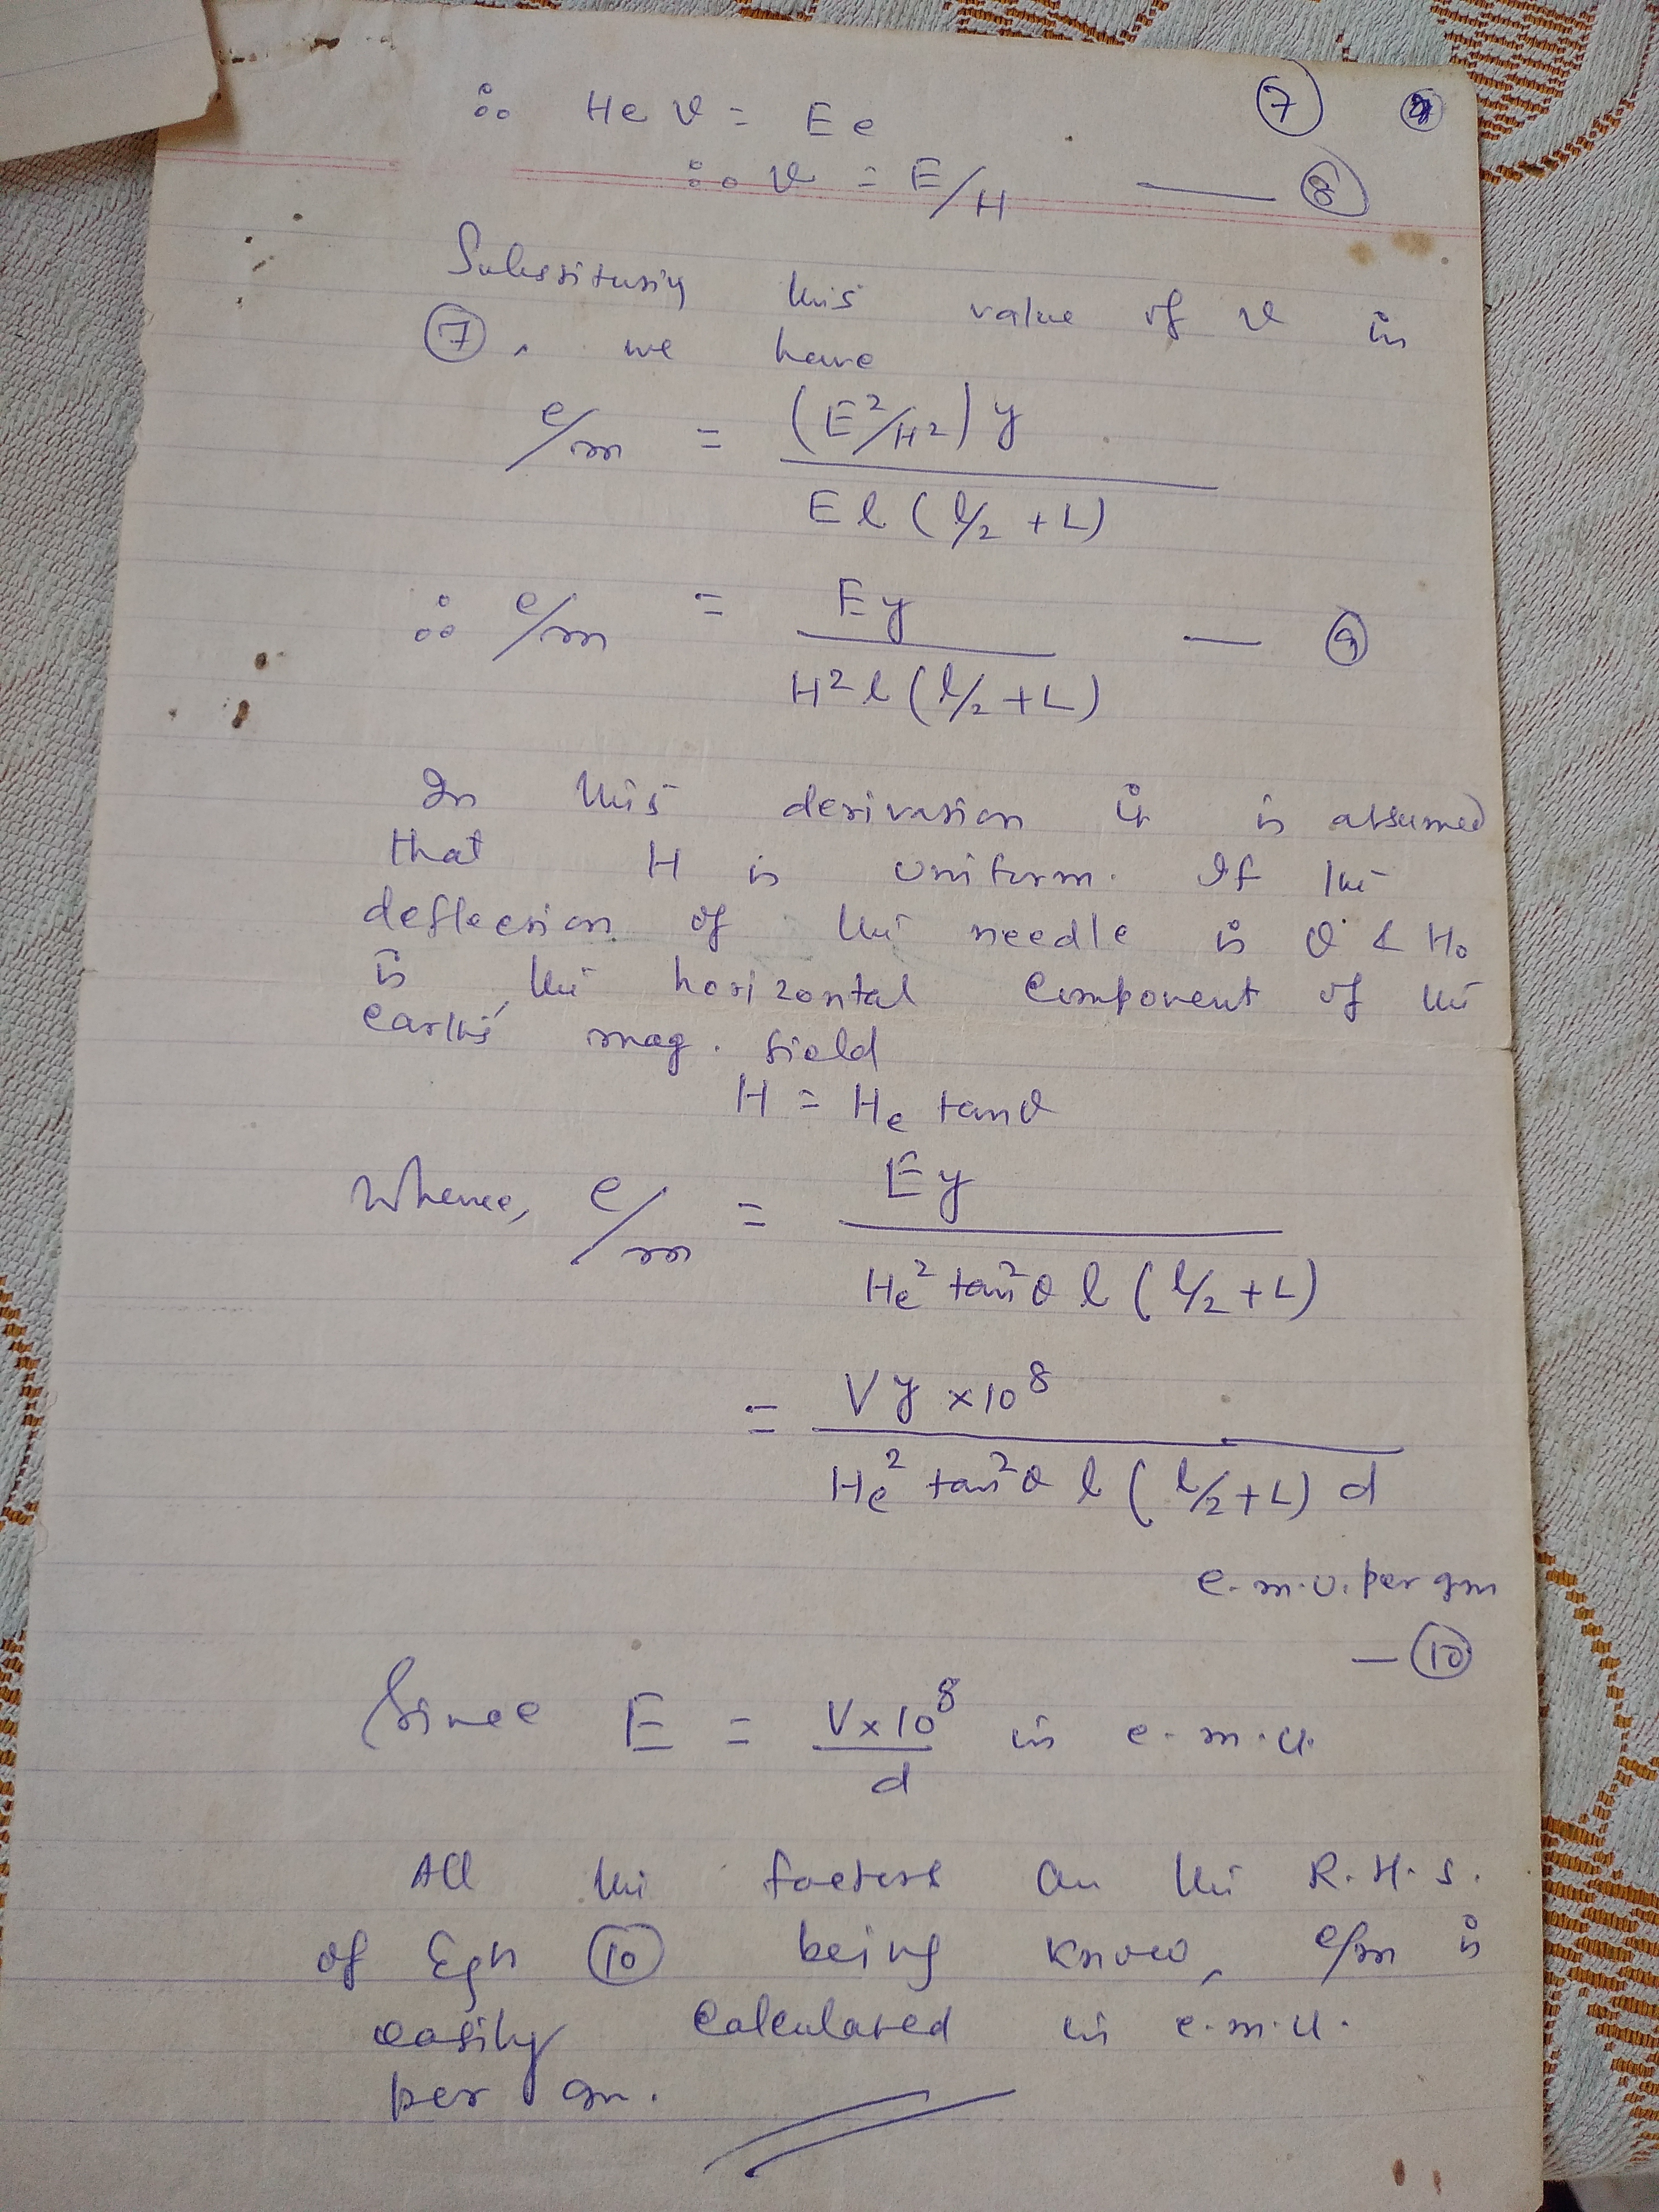 ∴ Hev = Ee ⑦
∴ v = E/H — ⑧
Substituting this value of v in
⑦, we have
e/m = (E²/H²) y / E l (l/2 + L)
∴ e/m = Ey / H² l (l/2 + L) — ⑨
In this derivation it is assumed
that H is uniform. If the
deflection of the needle is θ & Ho
is the horizontal component of the
earth's mag. field
H = He tanθ
Whence, e/m = Ey / He² tan²θ l (l/2 + L)
= Vy × 10⁸ / He² tan²θ l (l/2 + L) d
e.m.u. per gm
— ⑩
Since E = V×10⁸ / d in e.m.u.
All the factors on the R.H.S.
of Eqn ⑩ being known, e/m is
easily calculated in e.m.u.
per gm.